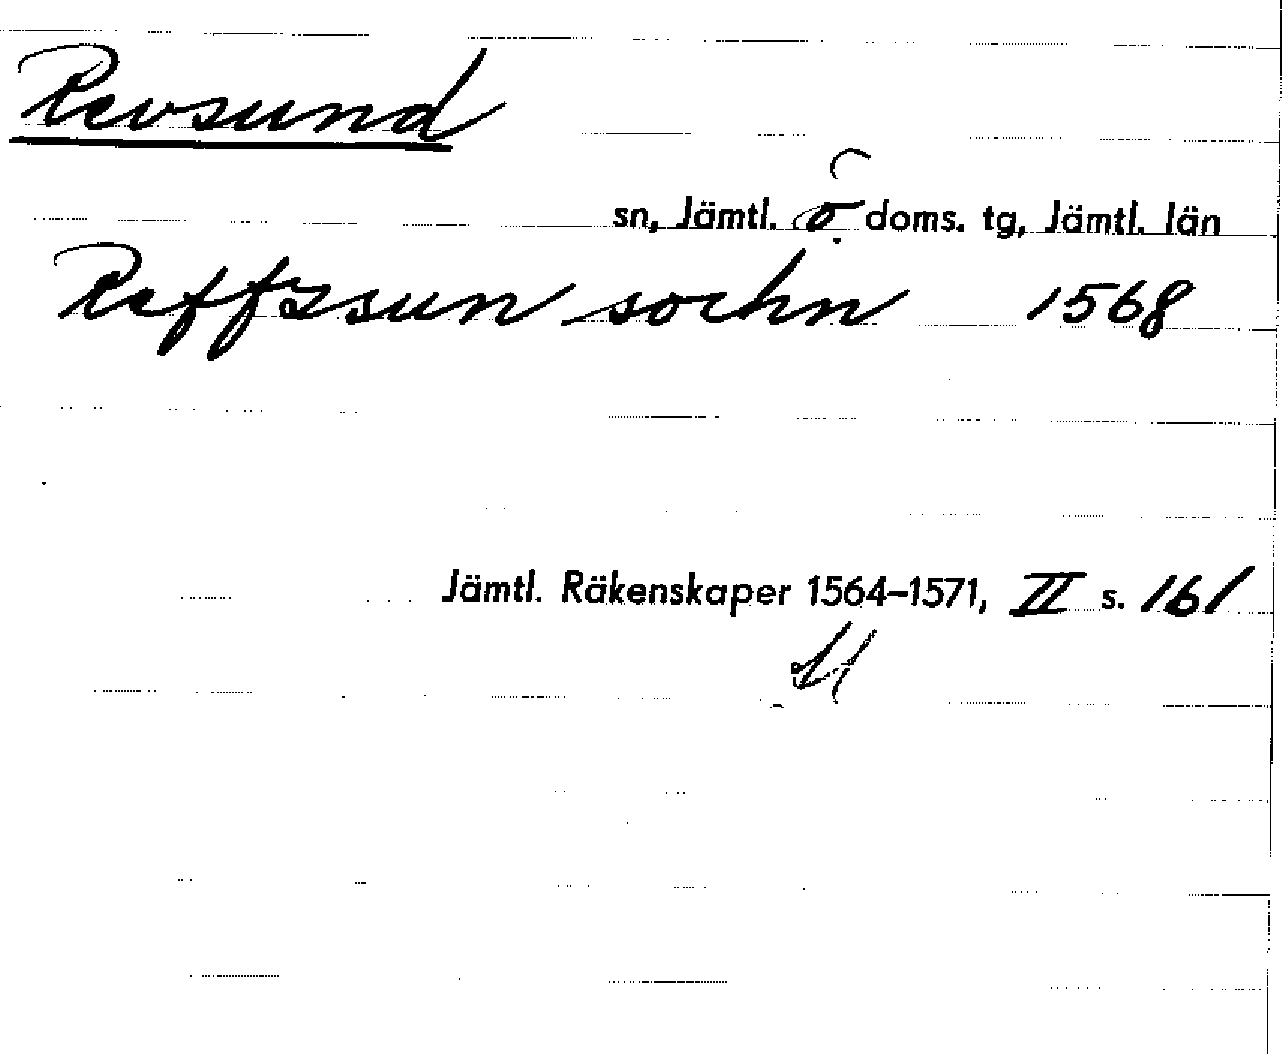 Revsund
sn, Jämtl. ö doms. tg, Jämtl. län
Reffzsun sochn 1568
Jämtl. Räkenskaper 1564–1571, II s. 161